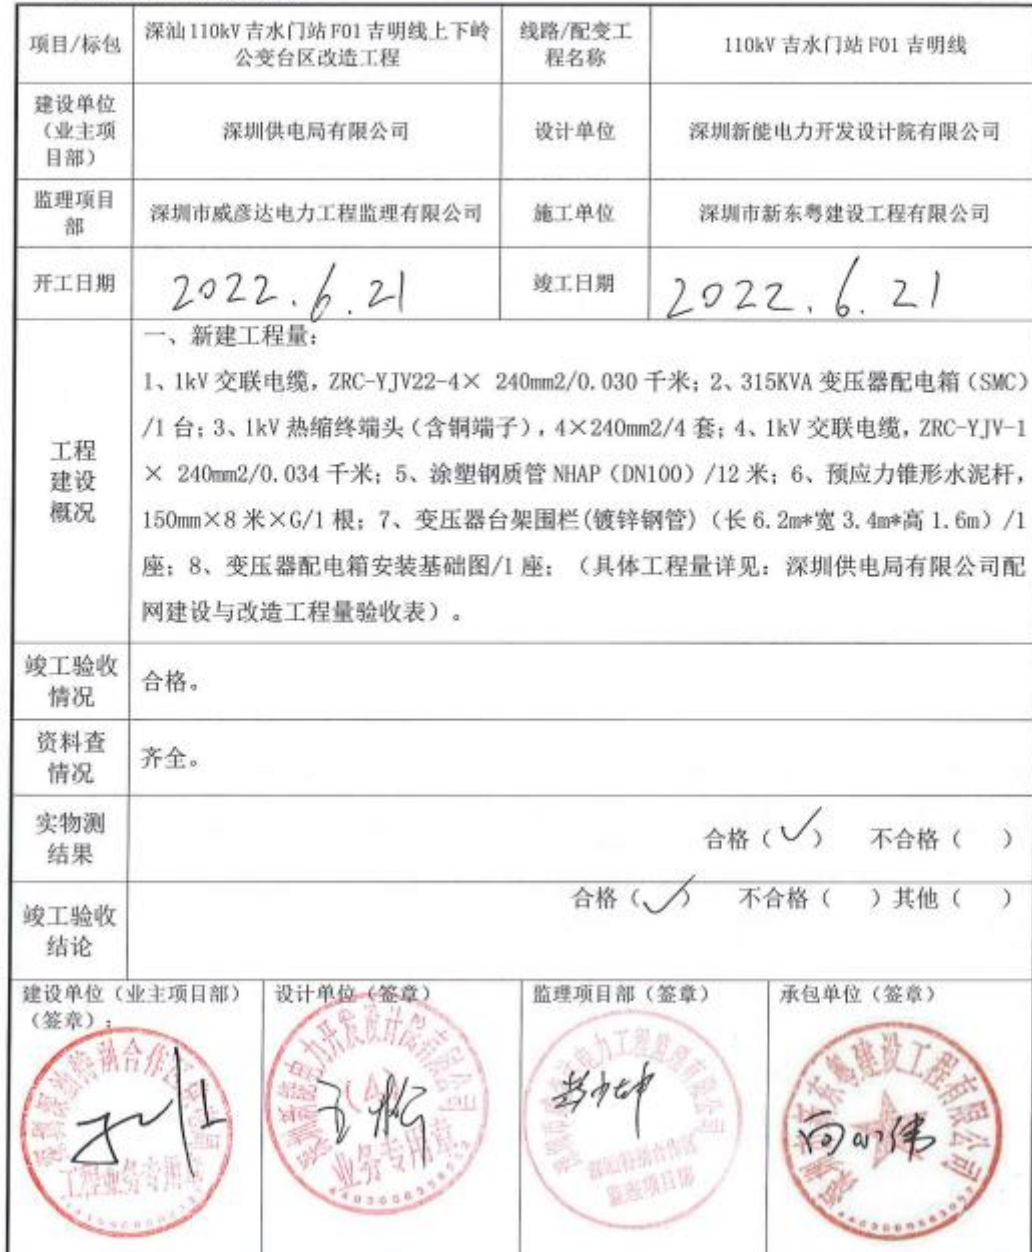 项目/标包
深汕110kV吉水门站F01吉明线上下岭
公变台区改造工程
线路/配变工
程名称
110kV吉水门站F01吉明线
建设单位
（业主项
目部）
深圳供电局有限公司
设计单位
深圳新能电力开发设计院有限公司
监理项目
部
深圳市威彦达电力工程监理有限公司
施工单位
深圳市新东粤建设工程有限公司
开工日期
2022.6.21
竣工日期
2022.6.21
工程
建设
概况
一、新建工程量：
1、1kV交联电缆，ZRC-YJV22-4× 240mm2/0.030千米；2、315KVA变压器配电箱（SMC）
/1台；3、1kV热缩终端头（含铜端子），4×240mm2/4套；4、1kV交联电缆，ZRC-YJV-1
× 240mm2/0.034千米；5、涂塑钢质管NHAP（DN100）/12米；6、预应力锥形水泥杆，
150mm×8米×G/1根；7、变压器台架围栏(镀锌钢管)（长6.2m*宽3.4m*高1.6m）/1
座；8、变压器配电箱安装基础图/1座；（具体工程量详见：深圳供电局有限公司配
网建设与改造工程量验收表）。
竣工验收
情况
合格。
资料查
情况
齐全。
实物测
结果
合格（✓） 不合格（ ）
竣工验收
结论
合格（✓） 不合格（ ）其他（ ）
建设单位（业主项目部）
（签章）：
工程业务专用章
设计单位（签章）
深圳新能电力开发设计院有限公司
业务专用章
监理项目部（签章）
监理项目部
承包单位（签章）
东粤建设工程有限公司
向小伟